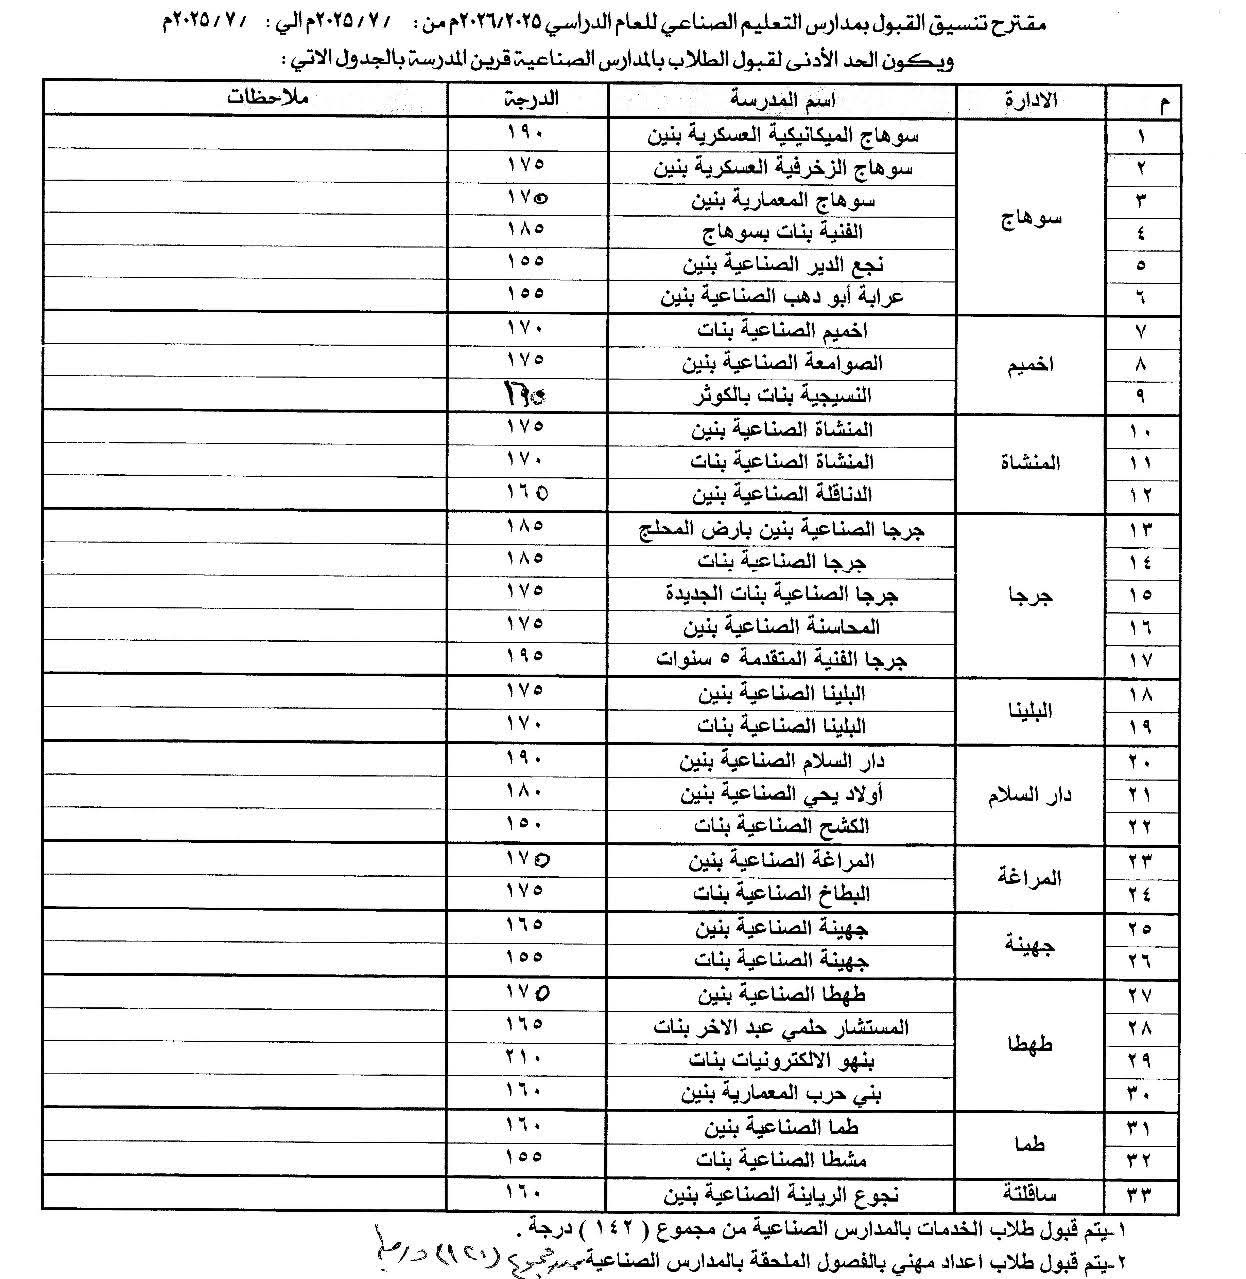 مقترح تنسيق القبول بمدارس التعليم الصناعي للعام الدراسي ٢٠٢٦/٢٠٢٥م من : / ٢٠٢٥/٧م الي : / ٢٠٢٥/٧م
ويكون الحد الأدنى لقبول الطلاب بالمدارس الصناعية قرين المدرسة بالجدول الاتي :
م الادارة اسم المدرسة الدرجة ملاحظات
١ سوهاج سوهاج الميكانيكية العسكرية بنين ١٩٠
٢ سوهاج الزخرفية العسكرية بنين ١٧٥
٣ سوهاج المعمارية بنين ١٧٥
٤ الفنية بنات بسوهاج ١٨٥
٥ نجع الدير الصناعية بنين ١٥٥
٦ عرابة أبو دهب الصناعية بنين ١٥٥
٧ اخميم اخميم الصناعية بنات ١٧٠
٨ الصوامعة الصناعية بنين ١٧٥
٩ النسيجية بنات بالكوثر
١٠ المنشاة المنشاة الصناعية بنين ١٧٥
١١ المنشاة الصناعية بنات ١٧٠
١٢ الدناقلة الصناعية بنين ١٦٥
١٣ جرجا جرجا الصناعية بنين بارض المحلج ١٨٥
١٤ جرجا الصناعية بنات ١٨٥
١٥ جرجا الصناعية بنات الجديدة ١٧٥
١٦ المحاسنة الصناعية بنين ١٧٥
١٧ جرجا الفنية المتقدمة ٥ سنوات ١٩٥
١٨ البلينا البلينا الصناعية بنين ١٧٥
١٩ البلينا الصناعية بنات ١٧٠
٢٠ دار السلام دار السلام الصناعية بنين ١٩٠
٢١ أولاد يحي الصناعية بنين ١٨٠
٢٢ الكشح الصناعية بنات ١٥٠
٢٣ المراغة المراغة الصناعية بنين ١٧٥
٢٤ البطاخ الصناعية بنات ١٧٥
٢٥ جهينة جهينة الصناعية بنين ١٦٥
٢٦ جهينة الصناعية بنات ١٥٥
٢٧ طهطا طهطا الصناعية بنين ١٧٥
٢٨ المستشار حلمي عبد الاخر بنات ١٦٥
٢٩ بنهو الالكترونيات بنات ٢١٠
٣٠ بني حرب المعمارية بنين ١٦٠
٣١ طما طما الصناعية بنين ١٦٠
٣٢ مشطا الصناعية بنات ١٥٥
٣٣ ساقلتة نجوع الرياينة الصناعية بنين ١٦٠
١-يتم قبول طلاب الخدمات بالمدارس الصناعية من مجموع ( ١٤٢ ) درجة .
٢-يتم قبول طلاب اعداد مهني بالفصول الملحقة بالمدارس الصناعية